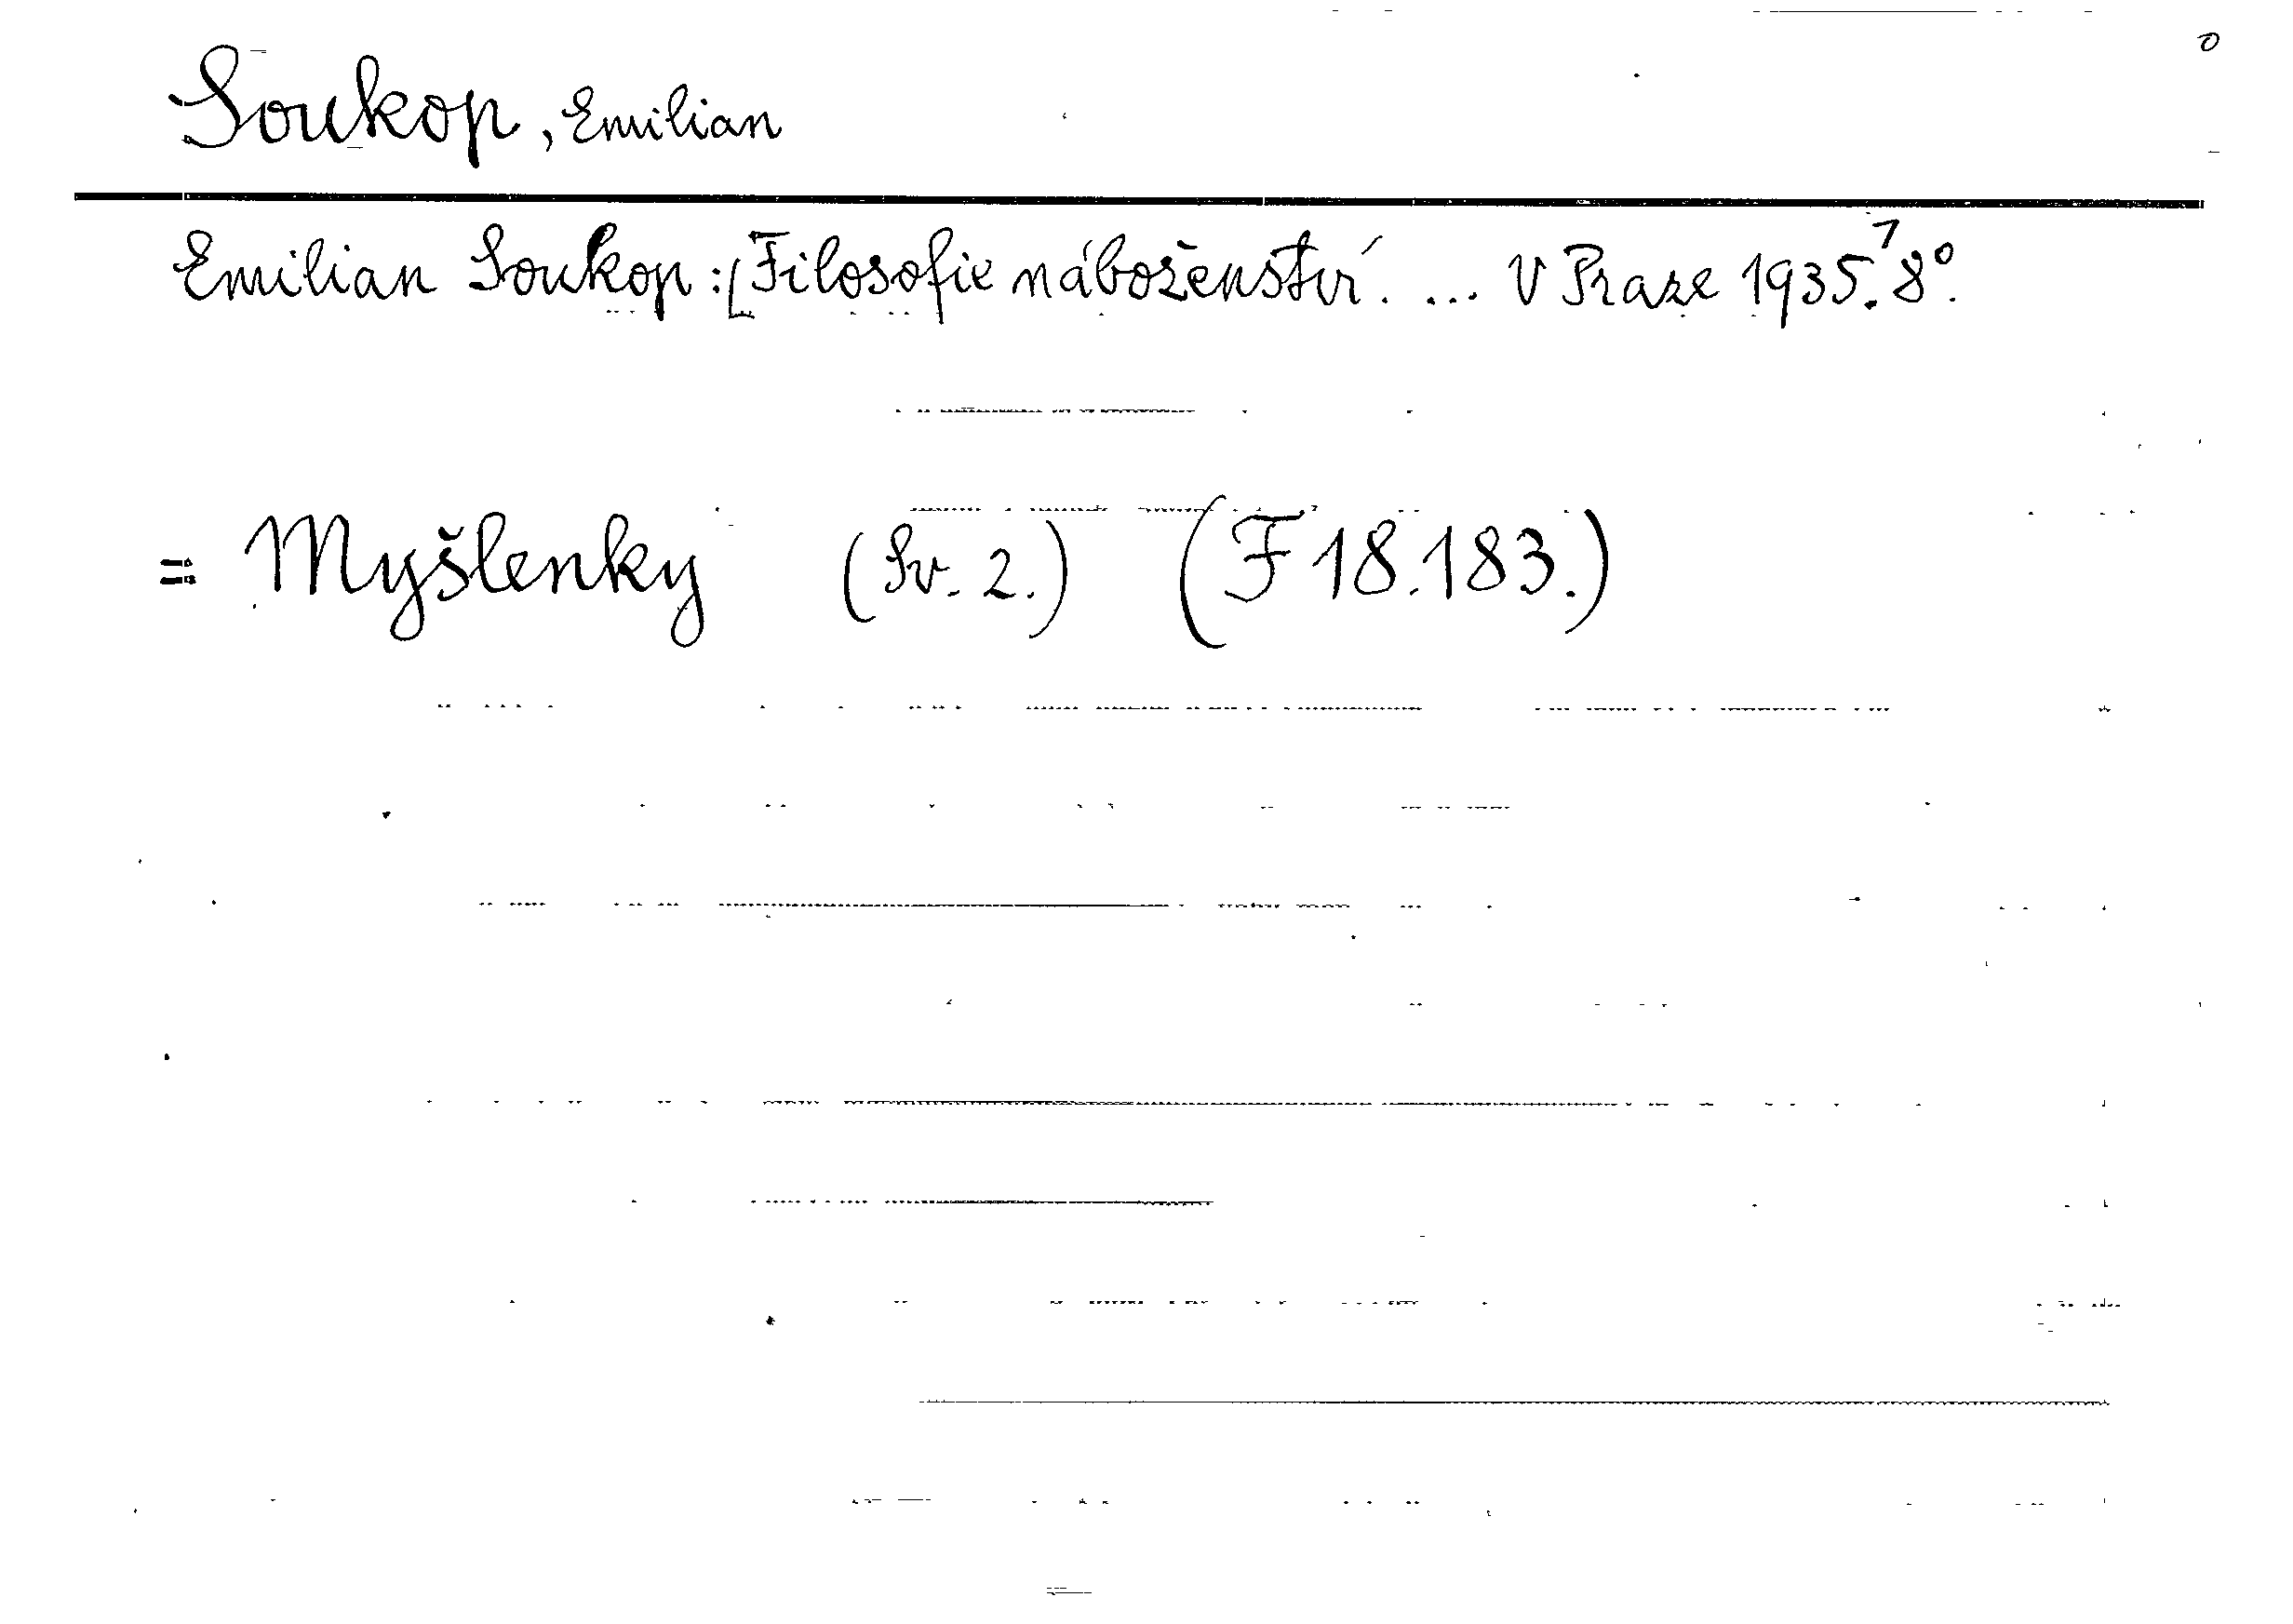 o
Soukop, Emilian
Emilian Soukop: [Filosofie náboženství. ... V Praze 1935.⁷ 8°.
= Myšlenky (Sv. 2.) (F 18.183.)